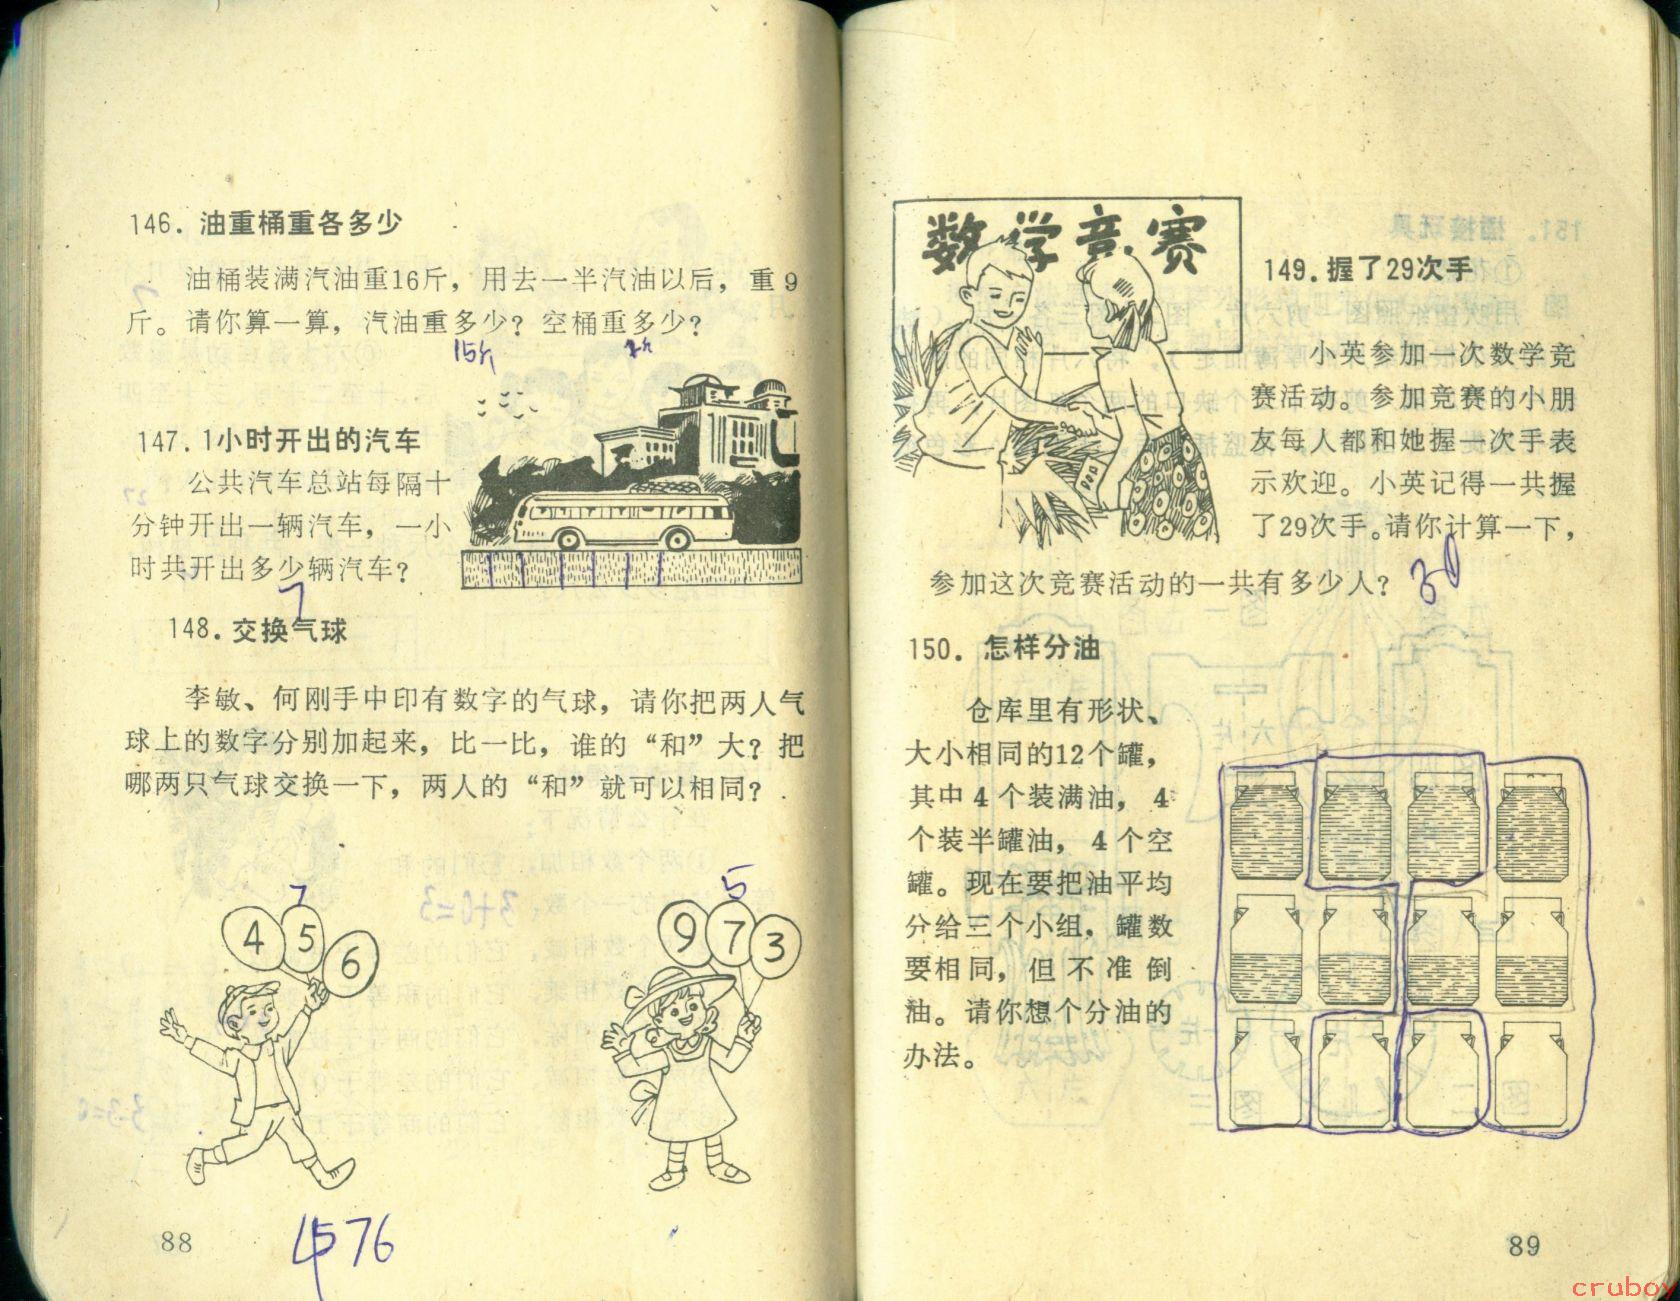 146. 油重桶重各多少
油桶装满汽油重16斤，用去一半汽油以后，重9
斤。请你算一算，汽油重多少？空桶重多少？
147. 1小时开出的汽车
公共汽车总站每隔十
分钟开出一辆汽车，一小
时共开出多少辆汽车？
7
148. 交换气球
李敏、何刚手中印有数字的气球，请你把两人气
球上的数字分别加起来，比一比，谁的“和”大？把
哪两只气球交换一下，两人的“和”就可以相同？
7
4 5 6
5
9 7 3
88
数学竞赛
149. 握了29次手
小英参加一次数学竞
赛活动。参加竞赛的小朋
友每人都和她握一次手表
示欢迎。小英记得一共握
了29次手。请你计算一下，
参加这次竞赛活动的一共有多少人？
30
150. 怎样分油
仓库里有形状、
大小相同的12个罐，
其中4个装满油，4
个装半罐油，4个空
罐。现在要把油平均
分给三个小组，罐数
要相同，但不准倒
油。请你想个分油的
办法。
89
cruboy